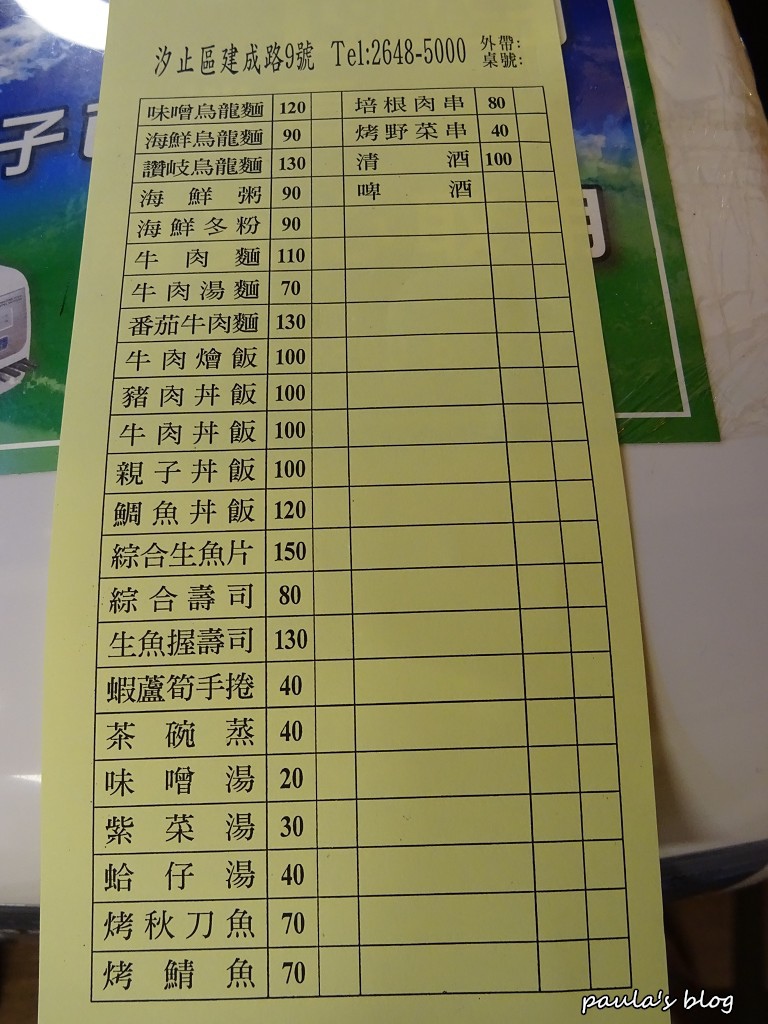 汐止區建成路9號 Tel:2648-5000 外帶:
桌號:
味噌烏龍麵 120 培根肉串 80
海鮮烏龍麵 90 烤野菜串 40
讚岐烏龍麵 130 清酒 100
海鮮粥 90 啤酒
海鮮冬粉 90
牛肉麵 110
牛肉湯麵 70
番茄牛肉麵 130
牛肉燴飯 100
豬肉丼飯 100
牛肉丼飯 100
親子丼飯 100
鯛魚丼飯 120
綜合生魚片 150
綜合壽司 80
生魚握壽司 130
蝦蘆筍手捲 40
茶碗蒸 40
味噌湯 20
紫菜湯 30
蛤仔湯 40
烤秋刀魚 70
烤鯖魚 70
子
用
paula's blog